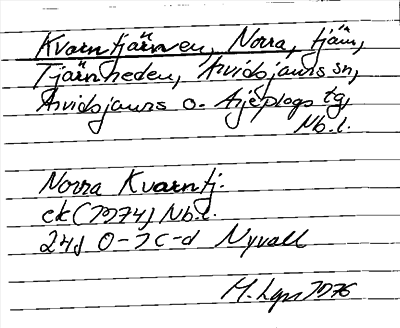 Kvarntjärnen, Norra, tjärn,
Tjärnheden, Arvidsjaurs sn,
Arvidsjaurs o. Arjeplogs tg,
Nb. l.
Norra Kvarntj.
ek (1974) Nb. l.
24J 0-1 c-d Nyvall
1976